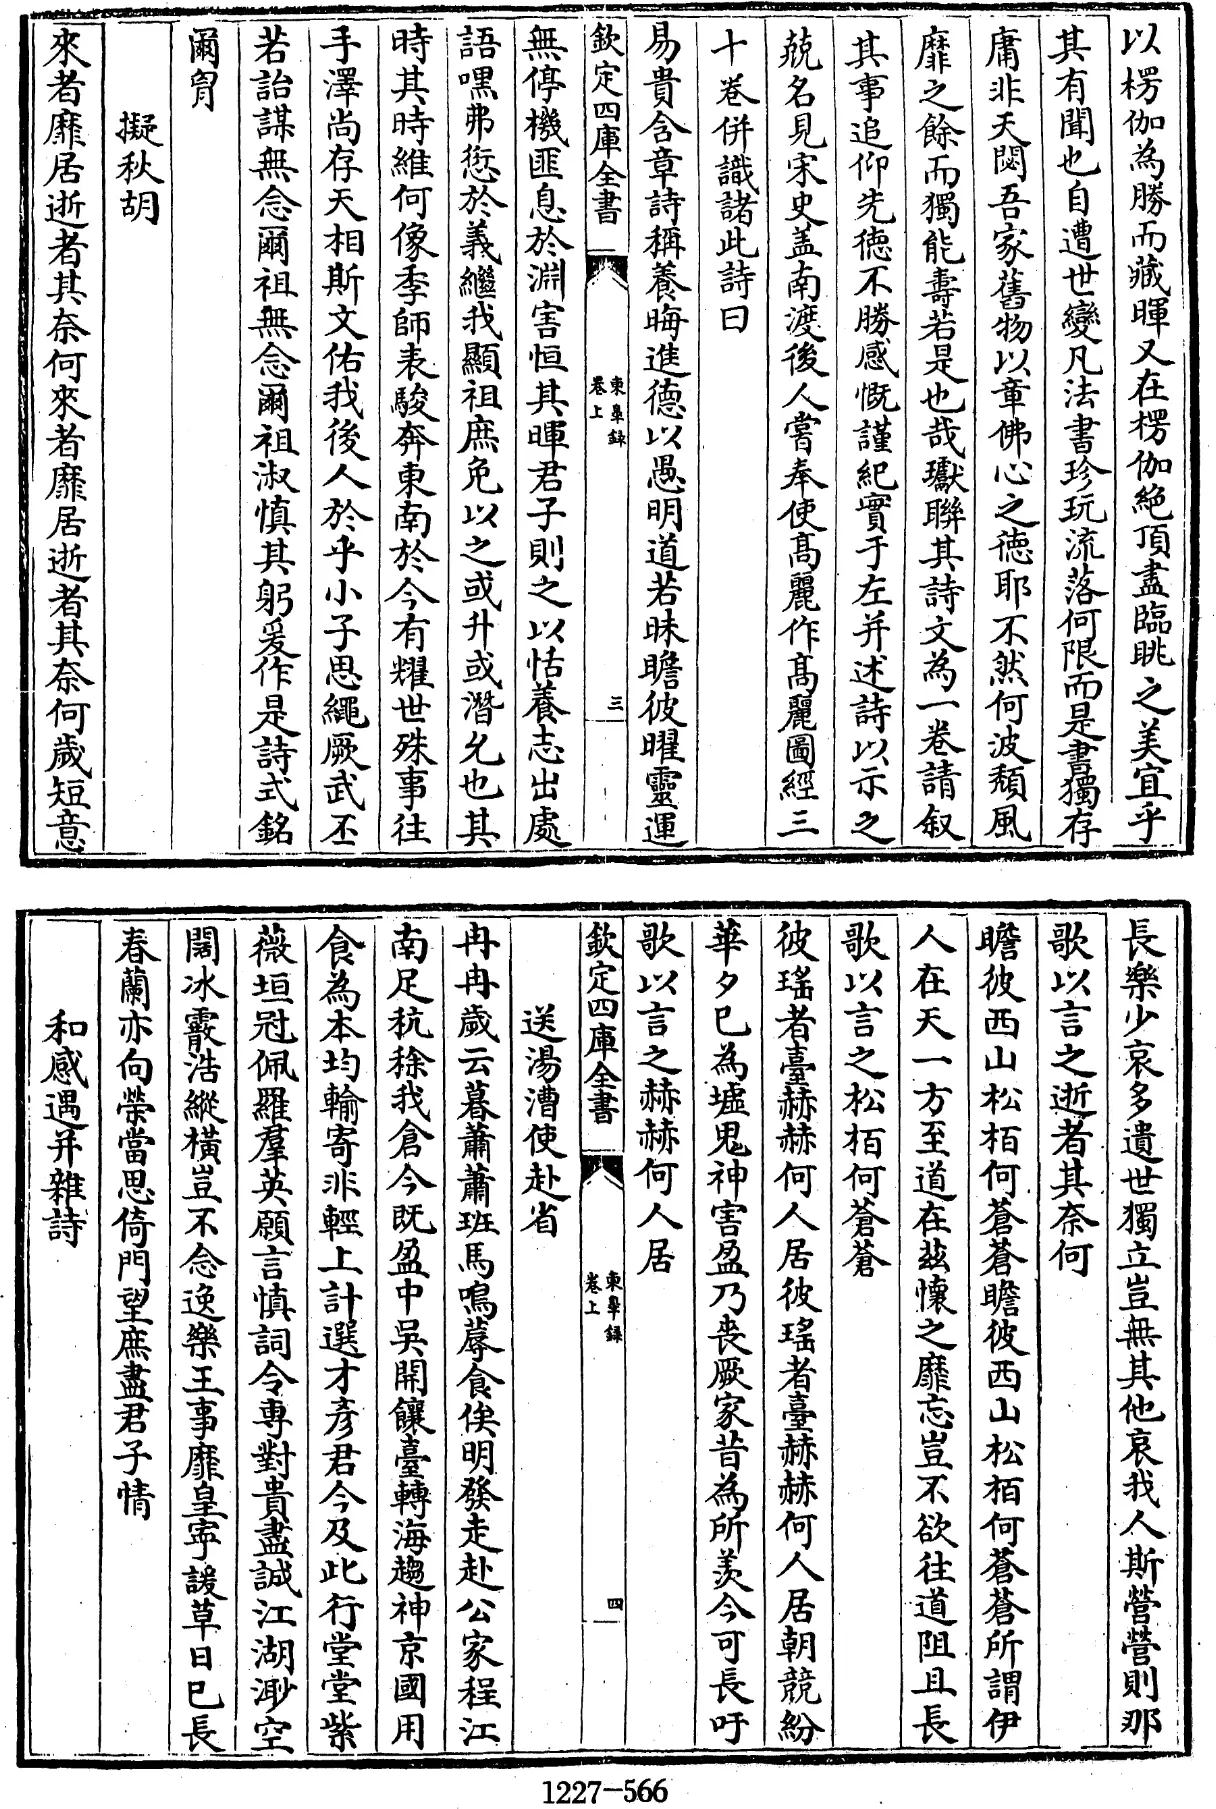 以楞伽為勝而藏暉又在楞伽絶頂盡臨眺之美宜乎
其有聞也自遭世變凡法書珍玩流落何限而是書獨存
庸非天閟吾家舊物以章佛心之徳耶不然何波頽風
靡之餘而獨能壽若是也哉瓛聯其詩文為一卷請叙
其事追仰先徳不勝感慨謹紀實于左并述詩以示之
兢名見宋史盖南渡後人嘗奉使髙麗作髙麗圖經三
十卷併識諸此詩曰
易貴含章詩稱養晦進德以愚明道若昧瞻彼曜靈運
欽定四庫全書
東臯録
卷上
三
無停機匪息於淵害恒其暉君子則之以恬養志出處
語嘿弗愆於義繼我顯祖庶免以之或升或潛允也其
時其時維何像季師表駿奔東南於今有耀世殊事往
手澤尚存天相斯文佑我後人於乎小子思繩厥武丕
若詒謀無念爾祖無念爾祖淑慎其躬爰作是詩式銘
爾胷
擬秋胡
來者靡居逝者其奈何來者靡居逝者其奈何歲短意
長樂少哀多遺世獨立豈無其他哀我人斯營營則那
歌以言之逝者其奈何
瞻彼西山松栢何蒼蒼瞻彼西山松栢何蒼蒼所謂伊
人在天一方至道在兹懷之靡忘豈不欲往道阻且長
歌以言之松栢何蒼蒼
彼瑤者臺赫赫何人居彼瑤者臺赫赫何人居朝競紛
華夕已為墟鬼神害盈乃喪厥家昔為所羡今可長吁
歌以言之赫赫何人居
欽定四庫全書
東臯録
卷上
四
送湯漕使赴省
冉冉歲云暮蕭蕭班馬鳴蓐食俟明發走赴公家程江
南足秔稌我倉今既盈中吳開饟臺轉海趨神京國用
食為本均輸寄非輕上計選才彥君今及此行堂堂紫
薇垣冠佩羅羣英願言慎詞令専對貴盡誠江湖渺空
闊冰霰浩縱横豈不念逸樂王事靡皇寧諼草日已長
春蘭亦向榮當思倚門望庶盡君子情
和感遇并雜詩
1227-566